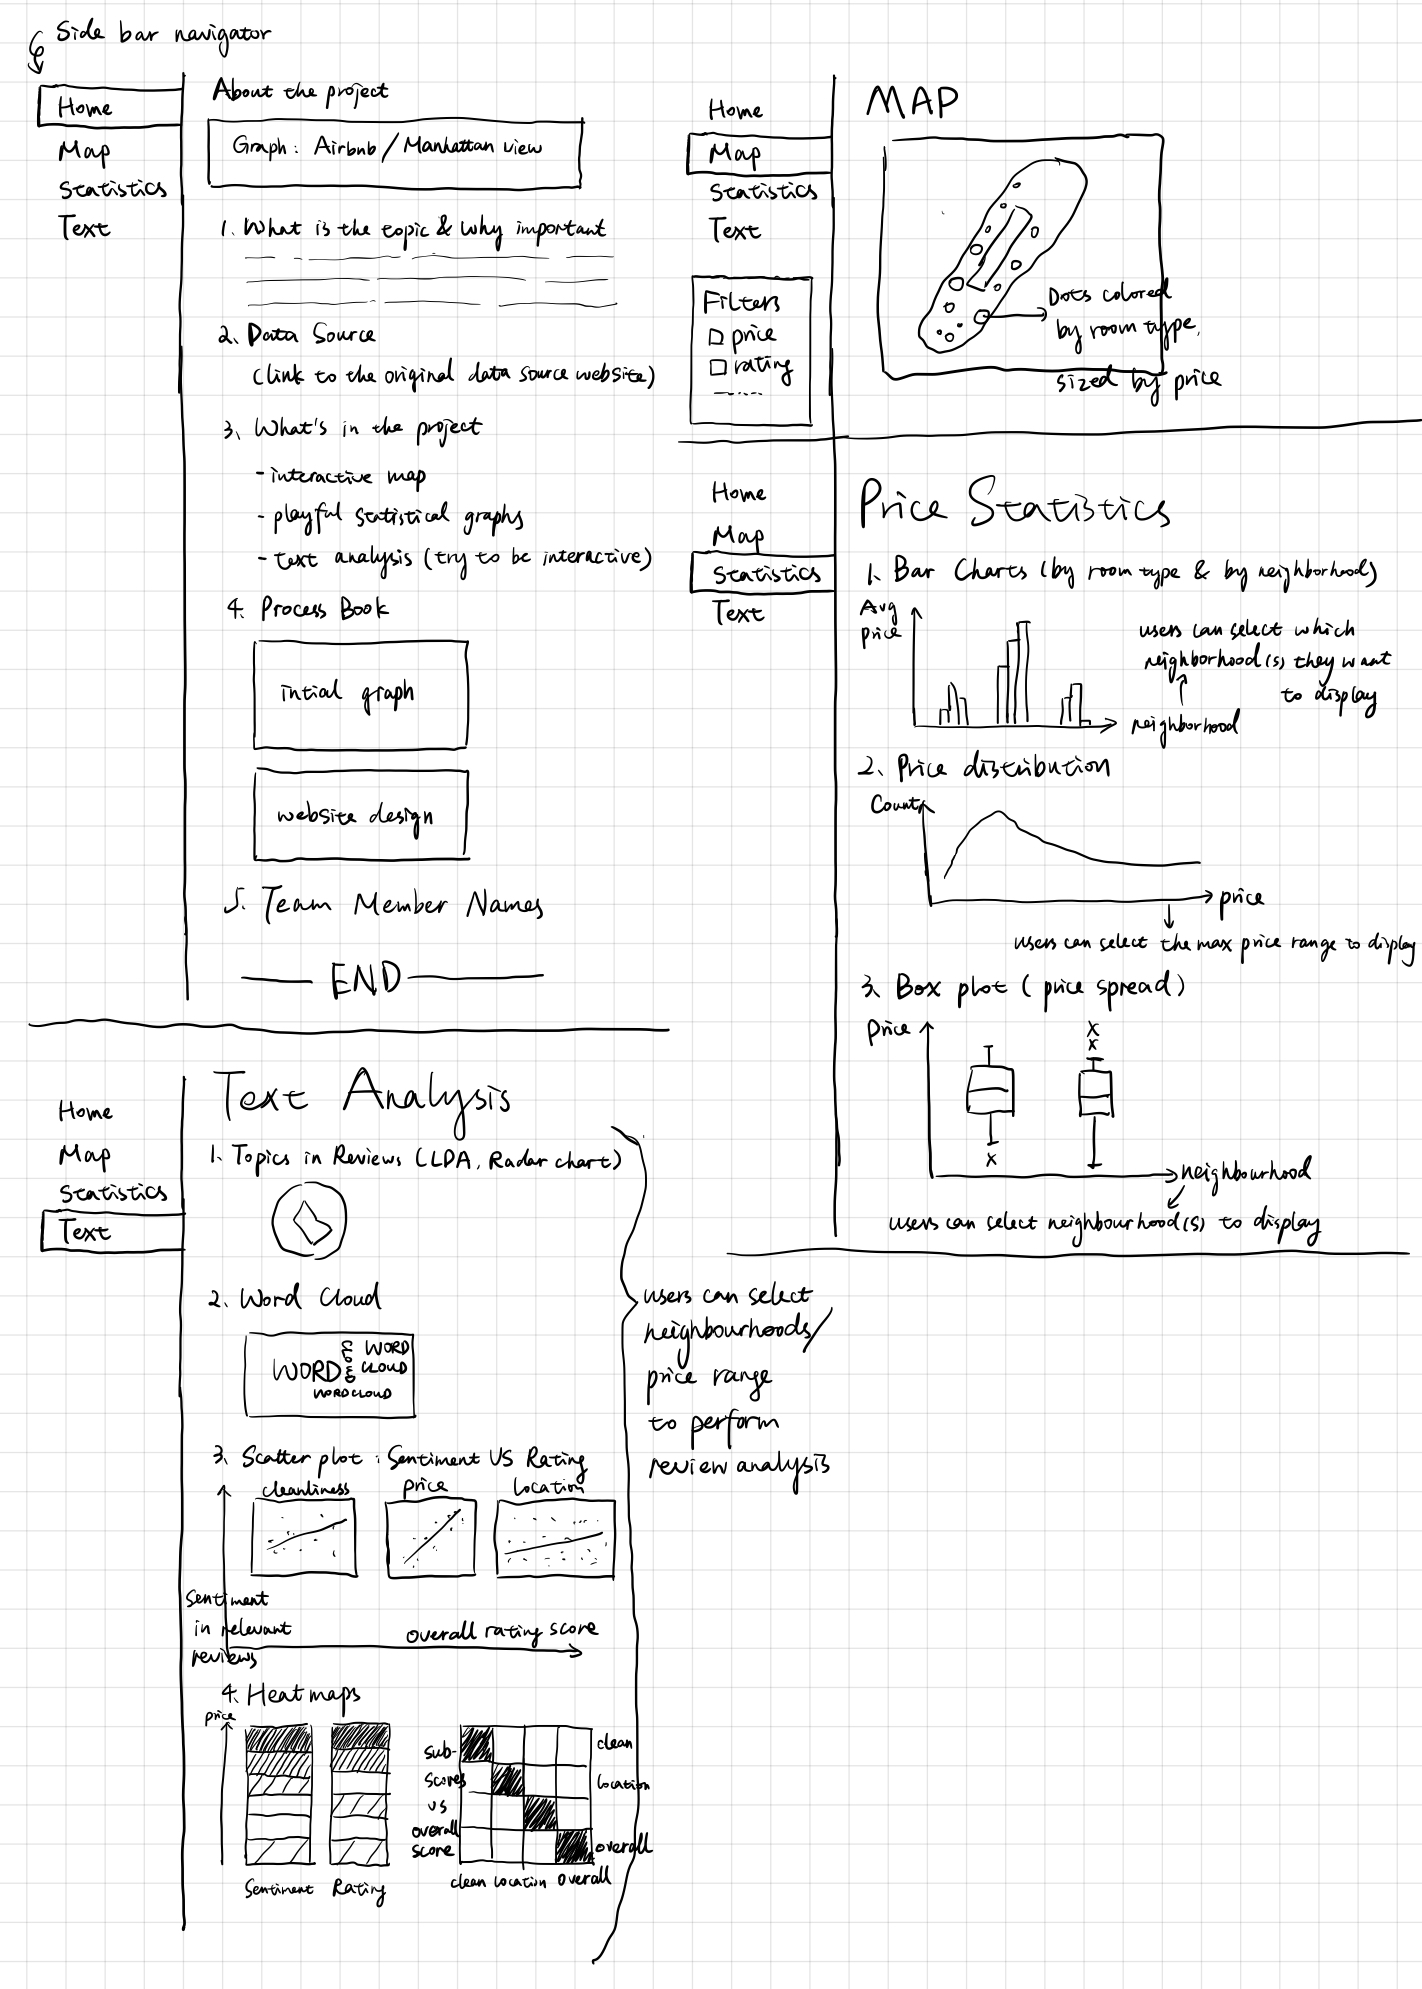 Side bar navigator
Home
Map
Statistics
Text
About the project
Graph: Airbnb/Manhattan view
1. What is the topic & why important
2. Data Source
(link to the original data source website)
3. What's in the project
- interactive map
- playful statistical graphs
- text analysis (try to be interactive)
4. Process Book
intial graph
website design
5. Team Member Names
END
Home
Map
Statistics
Text
Filters
price
rating
MAP
Dots colored
by room type,
sized by price
Home
Map
Statistics
Text
Price Statistics
1. Bar Charts (by room type & by neighborhood)
Avg
price
users can select which
neighborhood(s) they want
to display
neighborhood
2. Price distribution
Count
price
users can select the max price range to display
3. Box plot (price spread)
Price
neighbourhood
users can select neighbourhood(s) to display
Home
Map
Statistics
Text
Text Analysis
1. Topics in Reviews (LDA, Radar chart)
2. Word Cloud
WORD
WORD
CLOUD
WORDCLOUD
3. Scatter plot: Sentiment VS Rating
cleanliness
price
location
Sentiment
in relevant
reviews
overall rating score
4. Heatmaps
price
Sentiment
Rating
sub-
scores
vs
overall
score
clean
location
overall
clean location overall
users can select
neighbourhoods/
price range
to perform
review analysis